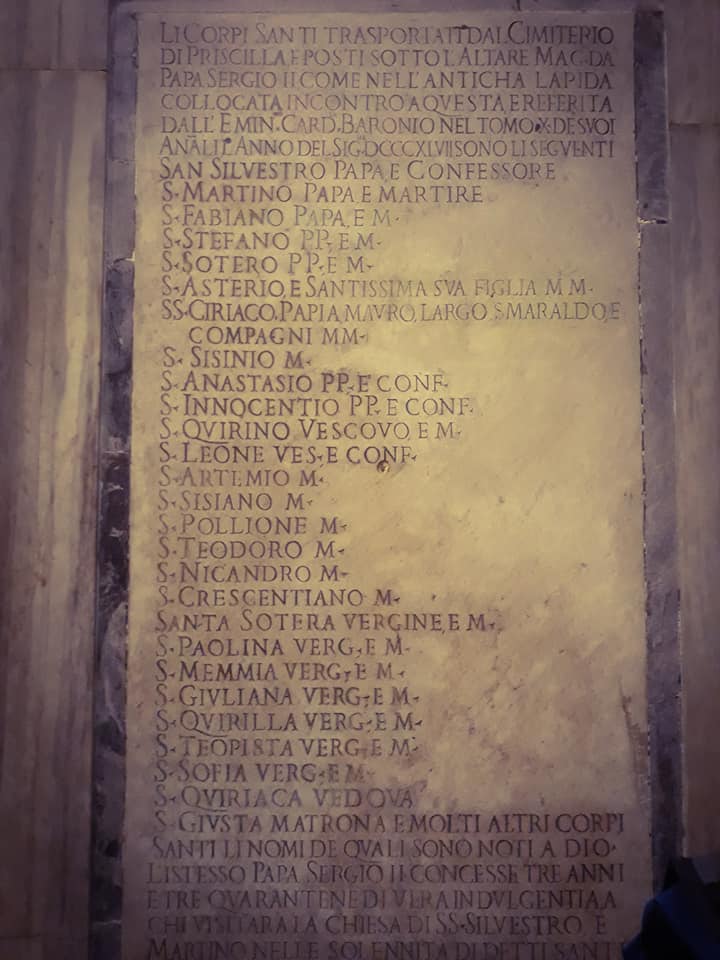 LI CORPI SANTI TRASPORTATI DAL CIMITERIO
DI PRISCILLA E POSTI SOTTO L'ALTARE MAG. DA
PAPA SERGIO II COME NELL'ANTICHA LAPIDA
COLLOCATA INCONTRO A QVESTA, E REFERITA
DALL'EMIN. CARD. BARONIO NEL TOMO X. DE SVOI
ANALI L'ANNO DEL SIG. DCCCXLVII SONO LI SEGVENTI
SAN SILVESTRO PAPA, E CONFESSORE
S. MARTINO PAPA E MARTIRE
S. FABIANO PAPA, E M.
S. STEFANO PP. E M.
S. SOTERO PP. E M.
S. ASTERIO, E SANTISSIMA SVA FIGLIA M M.
SS. CIRIACO, PAPIA, MAVRO, LARGO, SMARALDO, E
COMPAGNI MM.
S. SISINIO M.
S. ANASTASIO PP. E CONF.
S. INNOCENTIO PP. E CONF.
S. QVIRINO VESCOVO, E M.
S. LEONE VES. E CONF.
S. ARTEMIO M.
S. SISIANO M.
S. POLLIONE M.
S. TEODORO M.
S. NICANDRO M.
S. CRESCENTIANO M.
SANTA SOTERA VERGINE, E M.
S. PAOLINA VERG. E M.
S. MEMMIA VERG. E M.
S. GIVLIANA VERG. E M.
S. QVIRILLA VERG. E M.
S. TEOPISTA VERG. E M.
S. SOFIA VERG. E M.
S. QVIRIACA VEDOVA
S. GIVSTA MATRONA E MOLTI ALTRI CORPI
SANTI LI NOMI DE QVALI SONO NOTI A DIO.
L'ISTESSO PAPA SERGIO II CONCESSE TRE ANNI
E TRE QVARANTENE DI VERA INDVLGENTIA A
CHI VISITARA LA CHIESA DI SS. SILVESTRO, E
MARTINO NELLE SOLENNITA DI DETTI SANTI